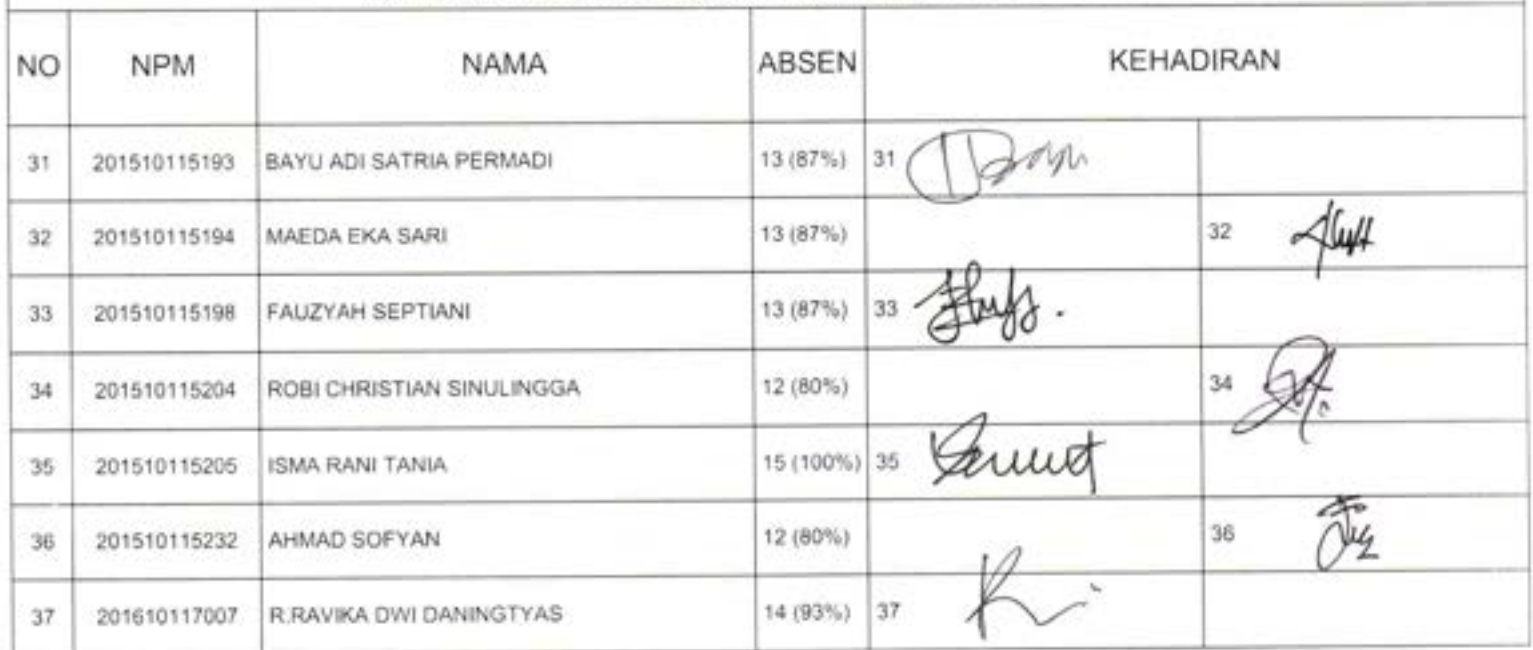 NO NPM NAMA ABSEN KEHADIRAN
31 201510115193 BAYU ADI SATRIA PERMADI 13 (87%) 31
32 201510115194 MAEDA EKA SARI 13 (87%) 32
33 201510115198 FAUZYAH SEPTIANI 13 (87%) 33
34 201510115204 ROBI CHRISTIAN SINULINGGA 12 (80%) 34
35 201510115205 ISMA RANI TANIA 15 (100%) 35
36 201510115232 AHMAD SOFYAN 12 (80%) 36
37 201610117007 R.RAVIKA DWI DANINGTYAS 14 (93%) 37